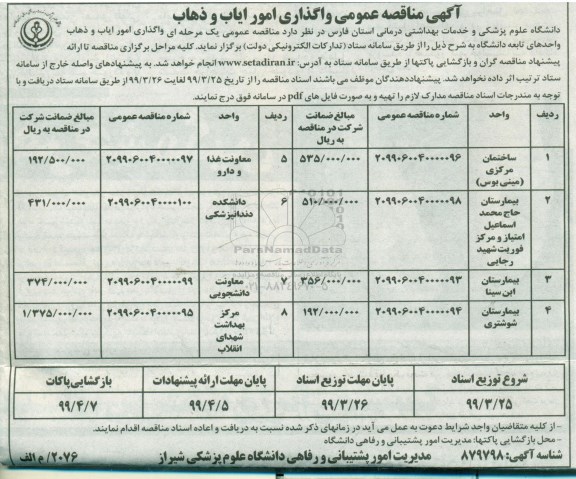 آگهی مناقصه عمومی واگذاری امور ایاب و ذهاب
دانشگاه علوم پزشکی و خدمات بهداشتی درمانی استان فارس در نظر دارد مناقصه عمومی یک مرحله ای واگذاری امور ایاب و ذهاب
واحدهای تابعه دانشگاه به شرح ذیل را از طریق سامانه ستاد (تدارکات الکترونیکی دولت) برگزار نماید. کلیه مراحل برگزاری مناقصه تا ارائه
پیشنهاد مناقصه گران و بازگشایی پاکتها از طریق سامانه ستاد به آدرس: www.setadiran.ir انجام خواهد شد. به پیشنهادهای واصله خارج از سامانه
ستاد ترتیب اثر داده نخواهد شد. پیشنهاددهندگان موظف می باشند اسناد مناقصه را از تاریخ ۹۹/۳/۲۵ لغایت ۹۹/۳/۲۶ از طریق سامانه ستاد دریافت و با
توجه به مندرجات اسناد مناقصه مدارک لازم را تهیه و به صورت فایل های pdf در سامانه فوق درج نمایند.
ردیف واحد شماره مناقصه عمومی مبالغ ضمانت شرکت در مناقصه به ریال ردیف واحد شماره مناقصه عمومی مبالغ ضمانت شرکت در مناقصه به ریال
۱ ساختمان مرکزی (مینی بوس) ۲۰۹۹۰۶۰۰۴۰۰۰۰۰۹۶ ۵۳۵/۰۰۰/۰۰۰ ۵ معاونت غذا و دارو ۲۰۹۹۰۶۰۰۴۰۰۰۰۰۹۷ ۱۹۲/۵۰۰/۰۰۰
۲ بیمارستان حاج محمد اسماعیل امتیاز و مرکز فوریت شهید رجایی ۲۰۹۹۰۶۰۰۴۰۰۰۰۰۹۸ ۵۱۰/۰۰۰/۰۰۰ ۶ دانشکده دندانپزشکی ۲۰۹۹۰۶۰۰۴۰۰۰۰۱۰۰ ۴۳۱/۰۰۰/۰۰۰
۳ بیمارستان ابن سینا ۲۰۹۹۰۶۰۰۴۰۰۰۰۰۹۳ ۳۵۶/۰۰۰/۰۰۰ ۷ معاونت دانشجویی ۲۰۹۹۰۶۰۰۴۰۰۰۰۰۹۹ ۳۷۴/۰۰۰/۰۰۰
۴ بیمارستان شوشتری ۲۰۹۹۰۶۰۰۴۰۰۰۰۰۹۴ ۱۹۲/۰۰۰/۰۰۰ ۸ مرکز بهداشت شهدای انقلاب ۲۰۹۹۰۶۰۰۴۰۰۰۰۰۹۵ ۱/۳۷۵/۰۰۰/۰۰۰
ParsNamadData
شروع توزیع اسناد پایان مهلت توزیع اسناد پایان مهلت ارائه پیشنهادات بازگشایی پاکات
۹۹/۳/۲۵ ۹۹/۳/۲۶ ۹۹/۴/۵ ۹۹/۴/۷
- از کلیه متقاضیان واجد شرایط دعوت به عمل می آید در زمانهای ذکر شده نسبت به دریافت و اعاده اسناد مناقصه اقدام نمایند.
- محل بازگشایی پاکتها: مدیریت امور پشتیبانی و رفاهی دانشگاه
شناسه آگهی: ۸۷۹۷۹۸ مدیریت امور پشتیبانی و رفاهی دانشگاه علوم پزشکی شیراز ۲۰۷۶/ م الف